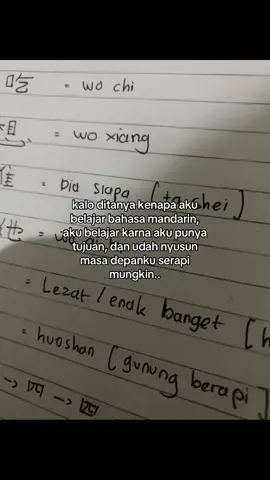 吃 = wo chi
= wo xiang
= Dia siapa [ta shei]
kalo ditanya kenapa aku
belajar bahasa mandarin,
aku belajar karna aku punya
tujuan, dan udah nyusun
masa depanku serapi
mungkin..
= Lezat / enak banget [h
= huoshan [gunung berapi]
→ 四 → 四